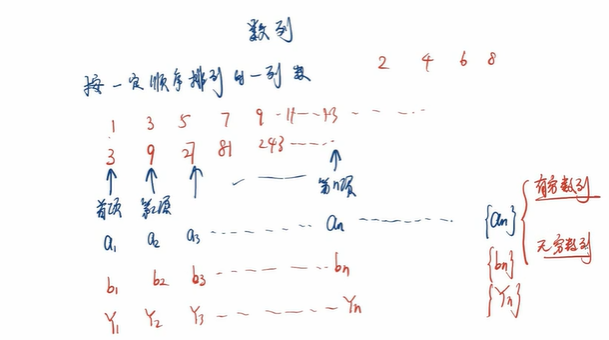 数列
2 4 6 8
按一定顺序排列的一列数
1 3 5 7 9 11 13 ......
3 9 27 81 243 ......
首项 第2项 第n项
a₁ a₂ a₃ ...... aₙ ......
b₁ b₂ b₃ ...... bₙ
Y₁ Y₂ Y₃ ...... Yₙ
有穷数列
{aₙ}
无穷数列
{bₙ}
{Yₙ}